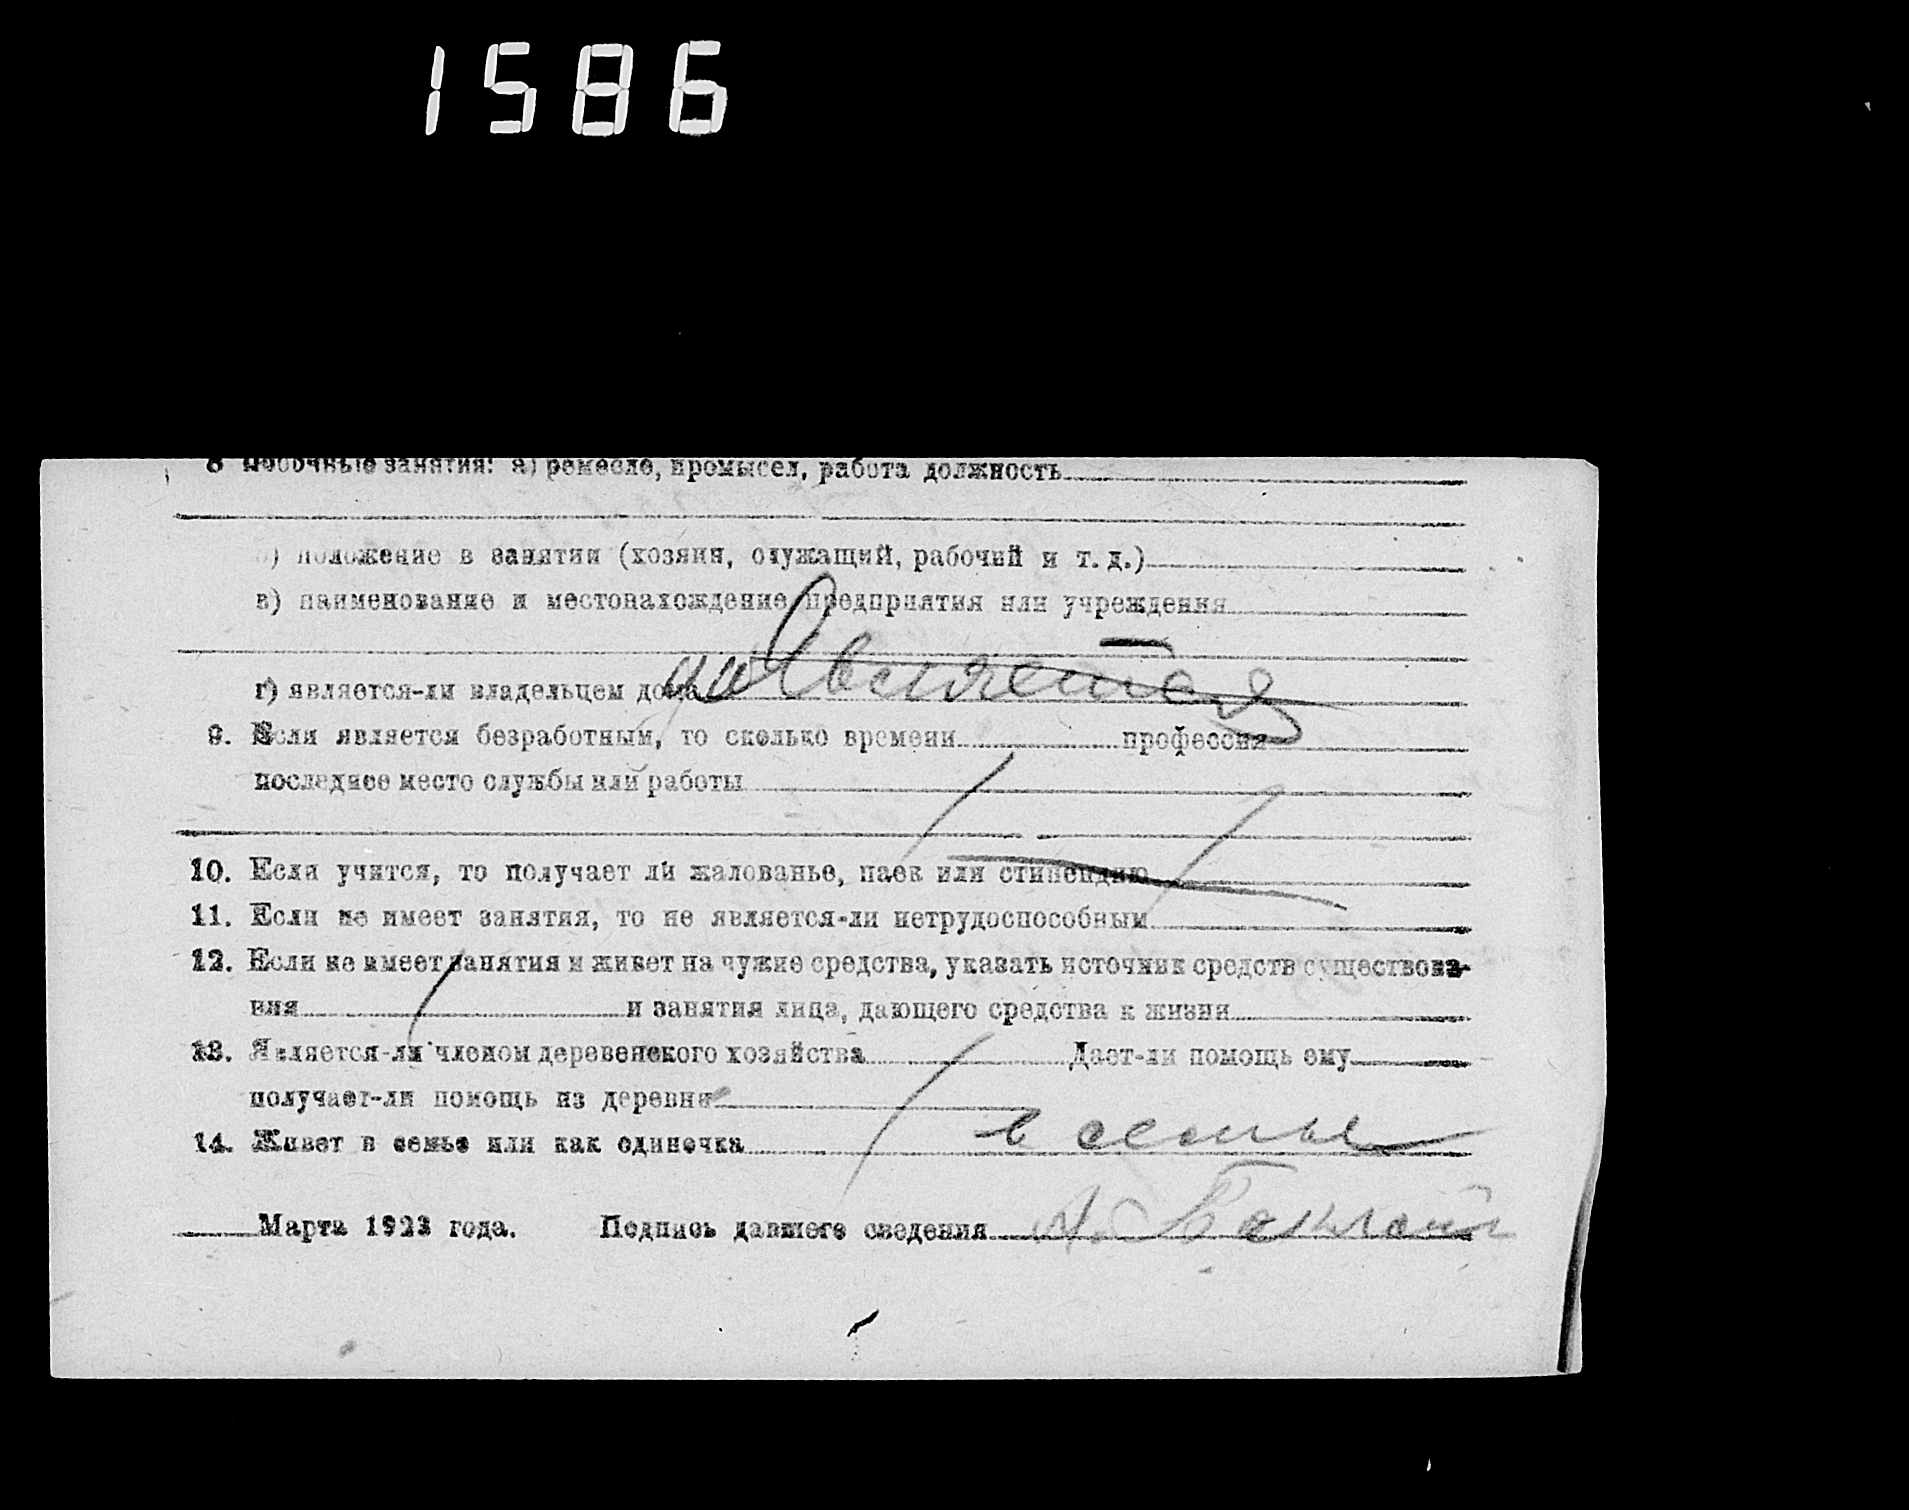 1586
8 Побочные занятия: а) ремесле, промысел, работа должность
б) положение в занятии (хозяин, служащий, рабочий и т. д.)
в) наименование и местонахождение предприятия или учреждения
г) является-ли владельцем дома
9. Если является безработным, то сколько времени профессия
последнее место службы или работы
10. Если учится, то получает ли жалованье, паек или стипендию
11. Если не имеет занятия, то не является-ли нетрудоспособным
12. Если не имеет занятия и живет на чужие средства, указать источник средств существова-
ния и занятия лица, дающего средства к жизни
13. Является-ли членом деревенского хозяйства Дает-ли помощь ему
получает-ли помощь из деревни
14. Живет в семье или как одиночка в семье
Марта 1923 года. Подпись давшего сведения А.